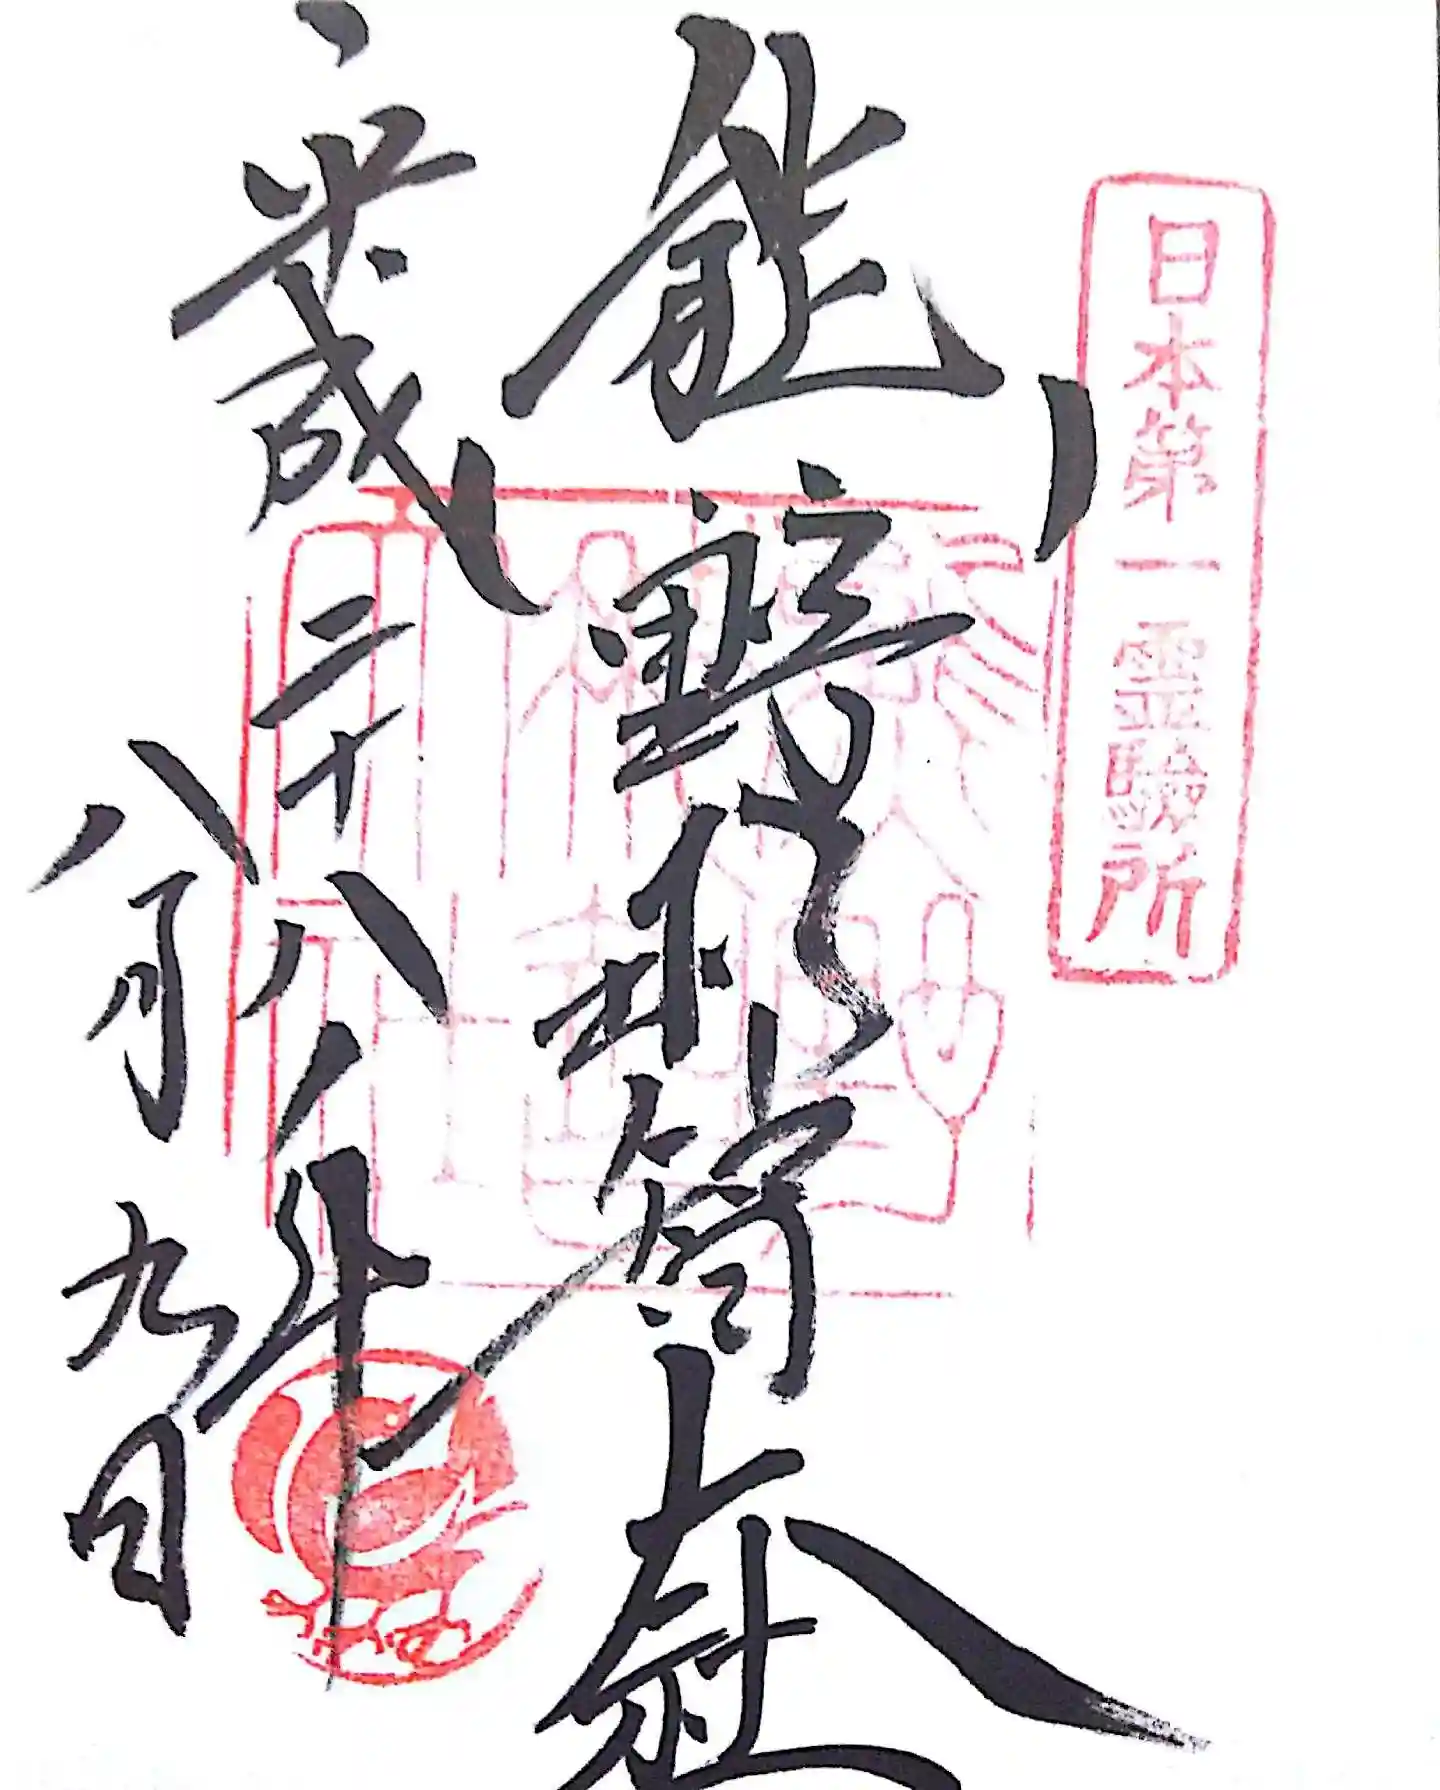 日本第一霊験所
熊野那智大社
平成二十八年
八月九日